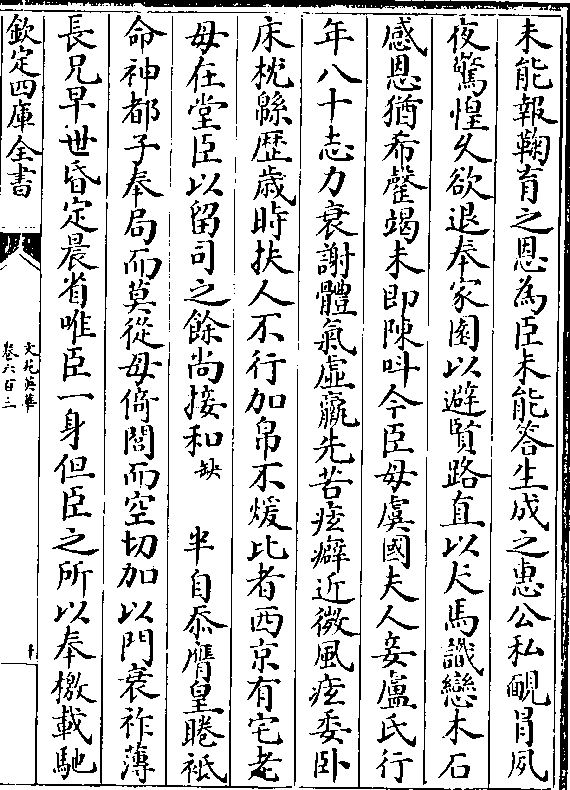 未能報鞠育之恩為臣未能答生成之惠公私靦冒夙
夜驚惶久欲退奉家園以避賢路直以犬馬識戀木石
感恩猶希罄竭未即陳叫今臣母虞國夫人妾盧氏行
年八十志力衰謝體氣虛羸先苦痃癖近微風痃委卧
床枕緜歴歳時扶人不行加帛不煖比者西京有宅老
母在堂臣以留司之餘尚接和缺　半自忝膺皇睠祗
命神都子奉局而莫從母倚閭而空切加以門衰祚薄
長兄早世昏定晨省唯臣一身但臣之所以奉檄載馳
欽定四庫全書
文苑英華
卷六百三